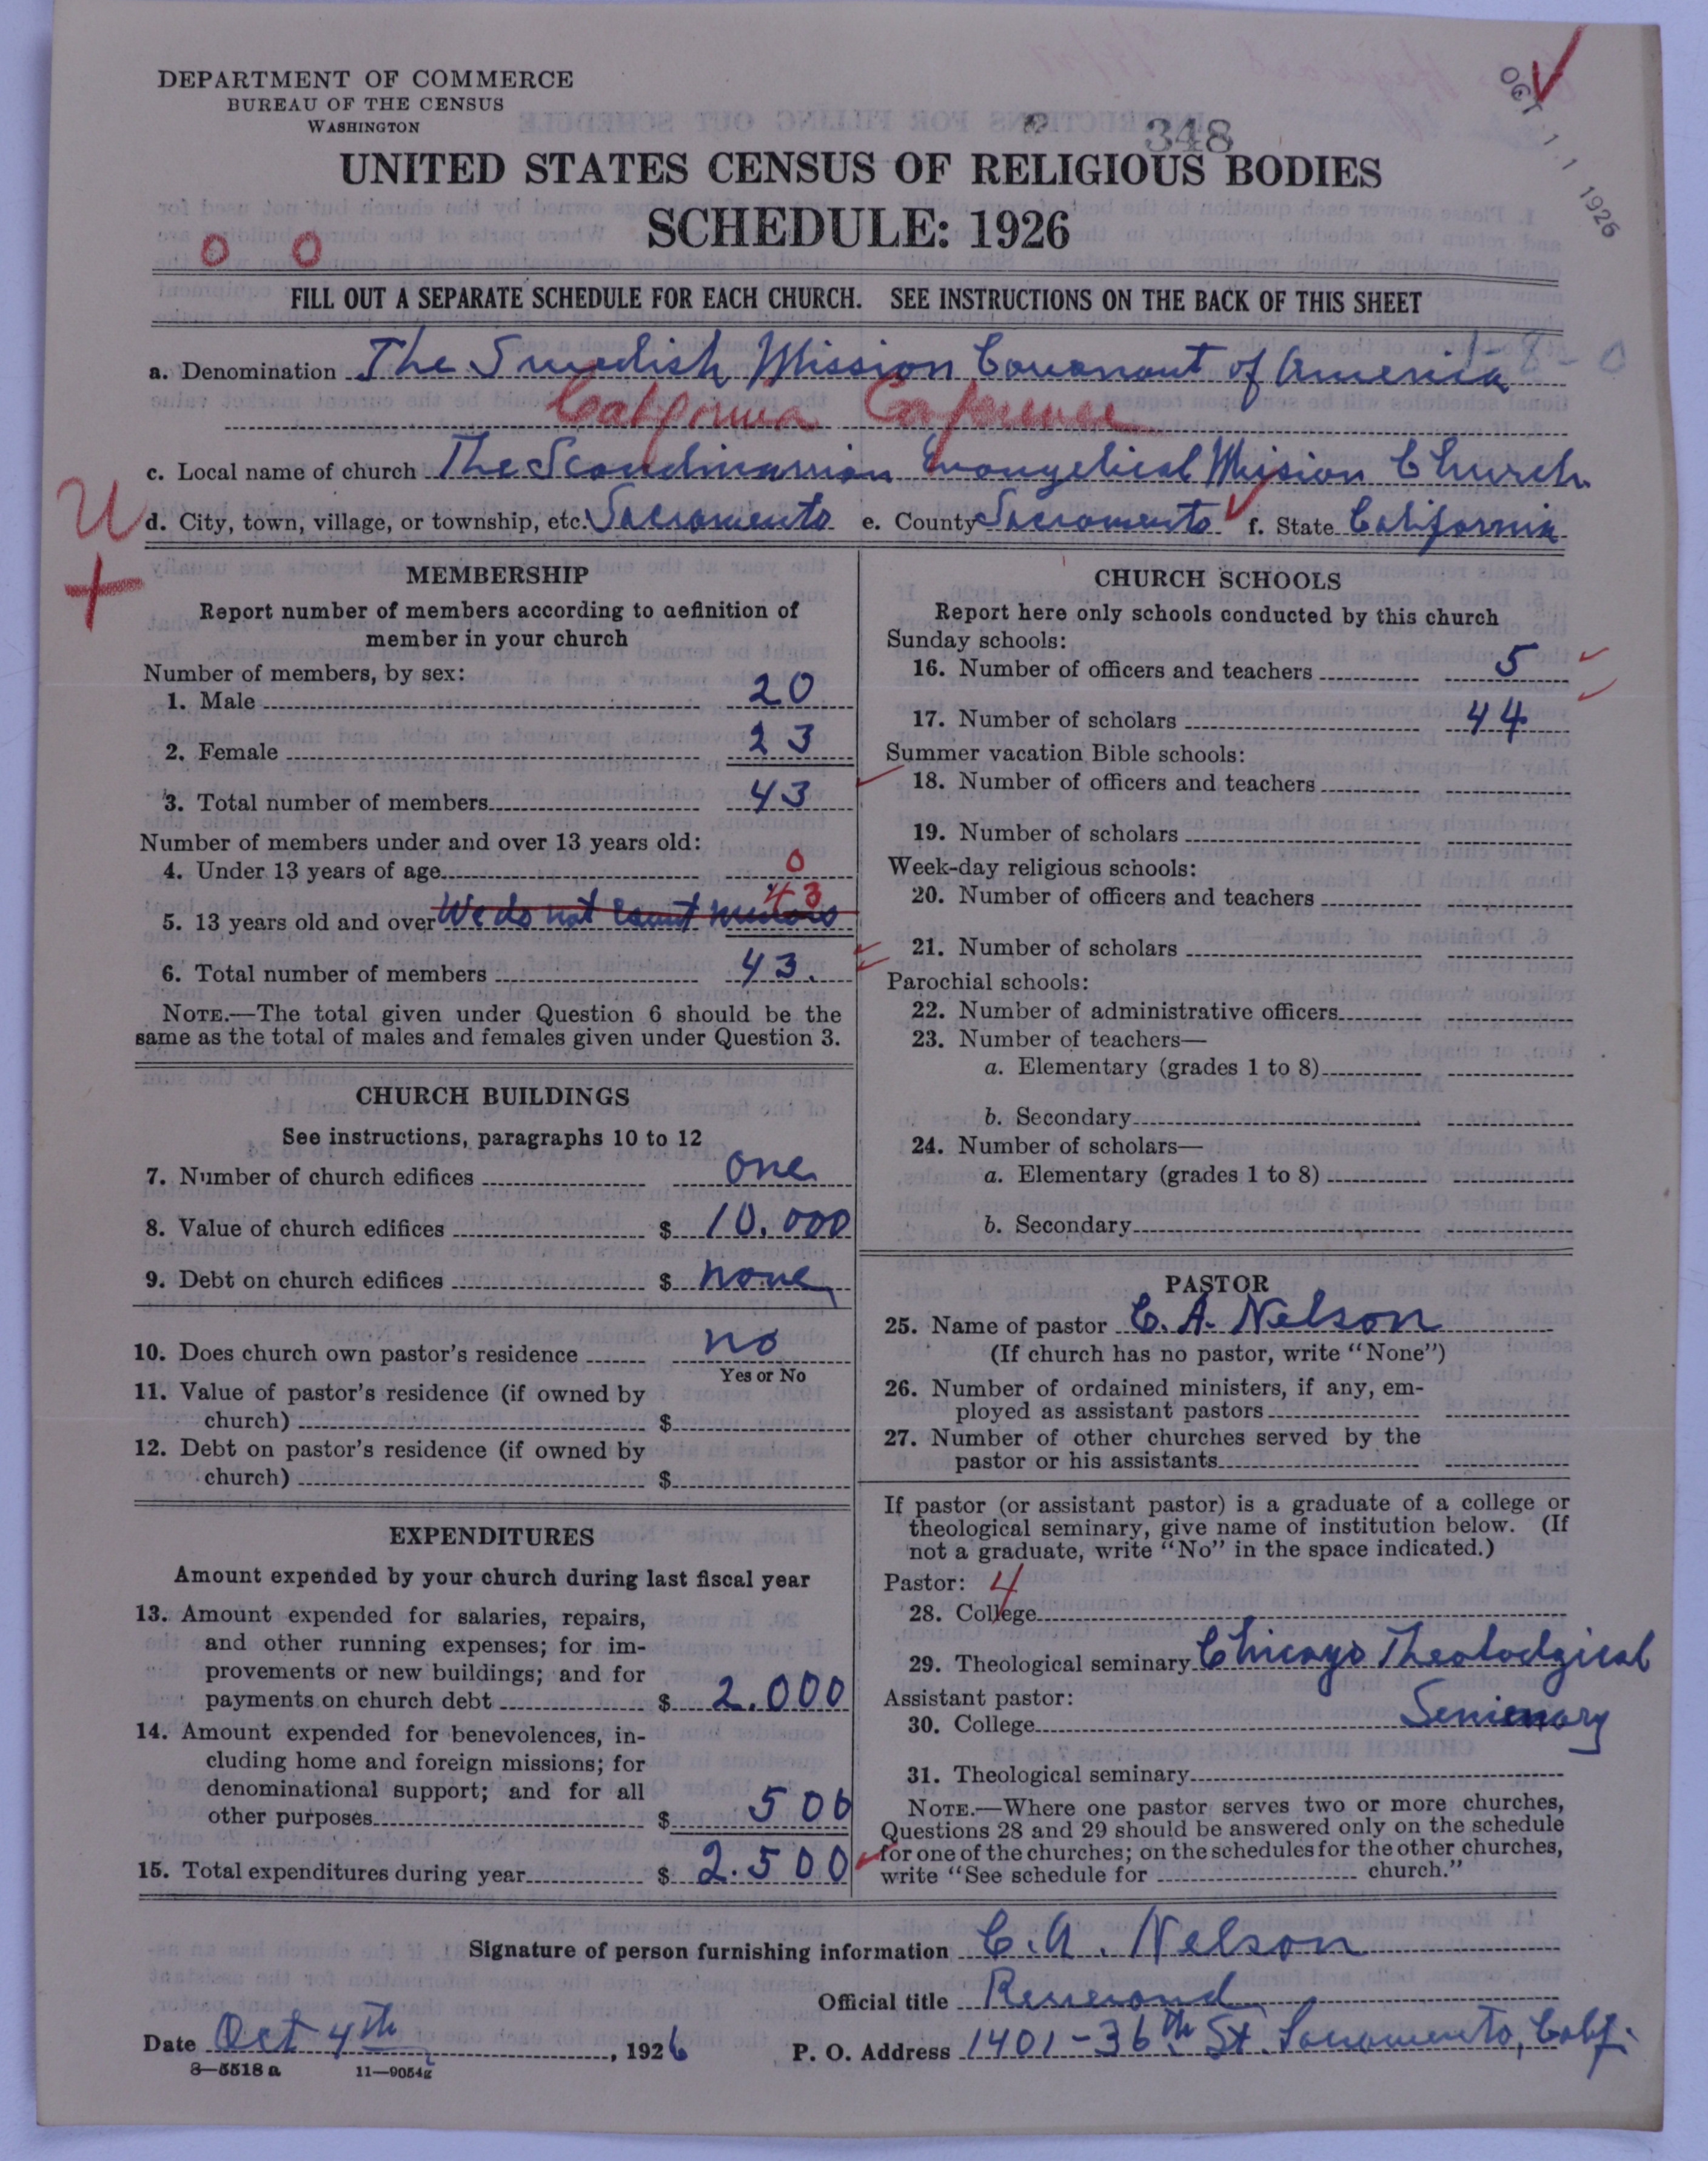 DEPARTMENT OF COMMERCE
BUREAU OF THE CENSUS
WASHINGTON
OCT 11 1926
348
UNITED STATES CENSUS OF RELIGIOUS BODIES
SCHEDULE: 1926
0 0
FILL OUT A SEPARATE SCHEDULE FOR EACH CHURCH. SEE INSTRUCTIONS ON THE BACK OF THIS SHEET
a. Denomination The Swedish Mission Covenant of America
California Conference
c. Local name of church The Scandinavian Evangelical Mission Church
U d. City, town, village, or township, etc. Sacramento e. County Sacramento f. State California
+
MEMBERSHIP
Report number of members according to definition of
member in your church
Number of members, by sex:
1. Male 20
2. Female 23
3. Total number of members 43
Number of members under and over 13 years old:
4. Under 13 years of age 0
43
5. 13 years old and over We do not count minors
6. Total number of members 43.
NOTE.—The total given under Question 6 should be the
same as the total of males and females given under Question 3.
CHURCH BUILDINGS
See instructions, paragraphs 10 to 12
7. Number of church edifices one
8. Value of church edifices $ 10.000
9. Debt on church edifices $ none
10. Does church own pastor's residence no
Yes or No
11. Value of pastor's residence (if owned by
church) $
12. Debt on pastor's residence (if owned by
church) $
EXPENDITURES
Amount expended by your church during last fiscal year
13. Amount expended for salaries, repairs,
and other running expenses; for im-
provements or new buildings; and for
payments on church debt $ 2.000
14. Amount expended for benevolences, in-
cluding home and foreign missions; for
denominational support; and for all
other purposes $ 500
15. Total expenditures during year $ 2.500
CHURCH SCHOOLS
Report here only schools conducted by this church
Sunday schools:
16. Number of officers and teachers 5
17. Number of scholars 44
Summer vacation Bible schools:
18. Number of officers and teachers
19. Number of scholars
Week-day religious schools:
20. Number of officers and teachers
21. Number of scholars
Parochial schools:
22. Number of administrative officers
23. Number of teachers—
a. Elementary (grades 1 to 8)
b. Secondary
24. Number of scholars—
a. Elementary (grades 1 to 8)
b. Secondary
PASTOR
25. Name of pastor C. A. Nelson
(If church has no pastor, write "None")
26. Number of ordained ministers, if any, em-
ployed as assistant pastors
27. Number of other churches served by the
pastor or his assistants
If pastor (or assistant pastor) is a graduate of a college or
theological seminary, give name of institution below. (If
not a graduate, write "No" in the space indicated.)
Pastor: 4
28. College
29. Theological seminary Chicago Theolodgical
Assistant pastor:
30. College Semienary
31. Theological seminary
NOTE.—Where one pastor serves two or more churches,
Questions 28 and 29 should be answered only on the schedule
for one of the churches; on the schedules for the other churches,
write "See schedule for church."
Signature of person furnishing information C. A. Nelson
Official title Reverand
Date Oct 4th, 1926 P. O. Address 1401-36th St. Sacramento, Calif.
8—5518 a 11—9054